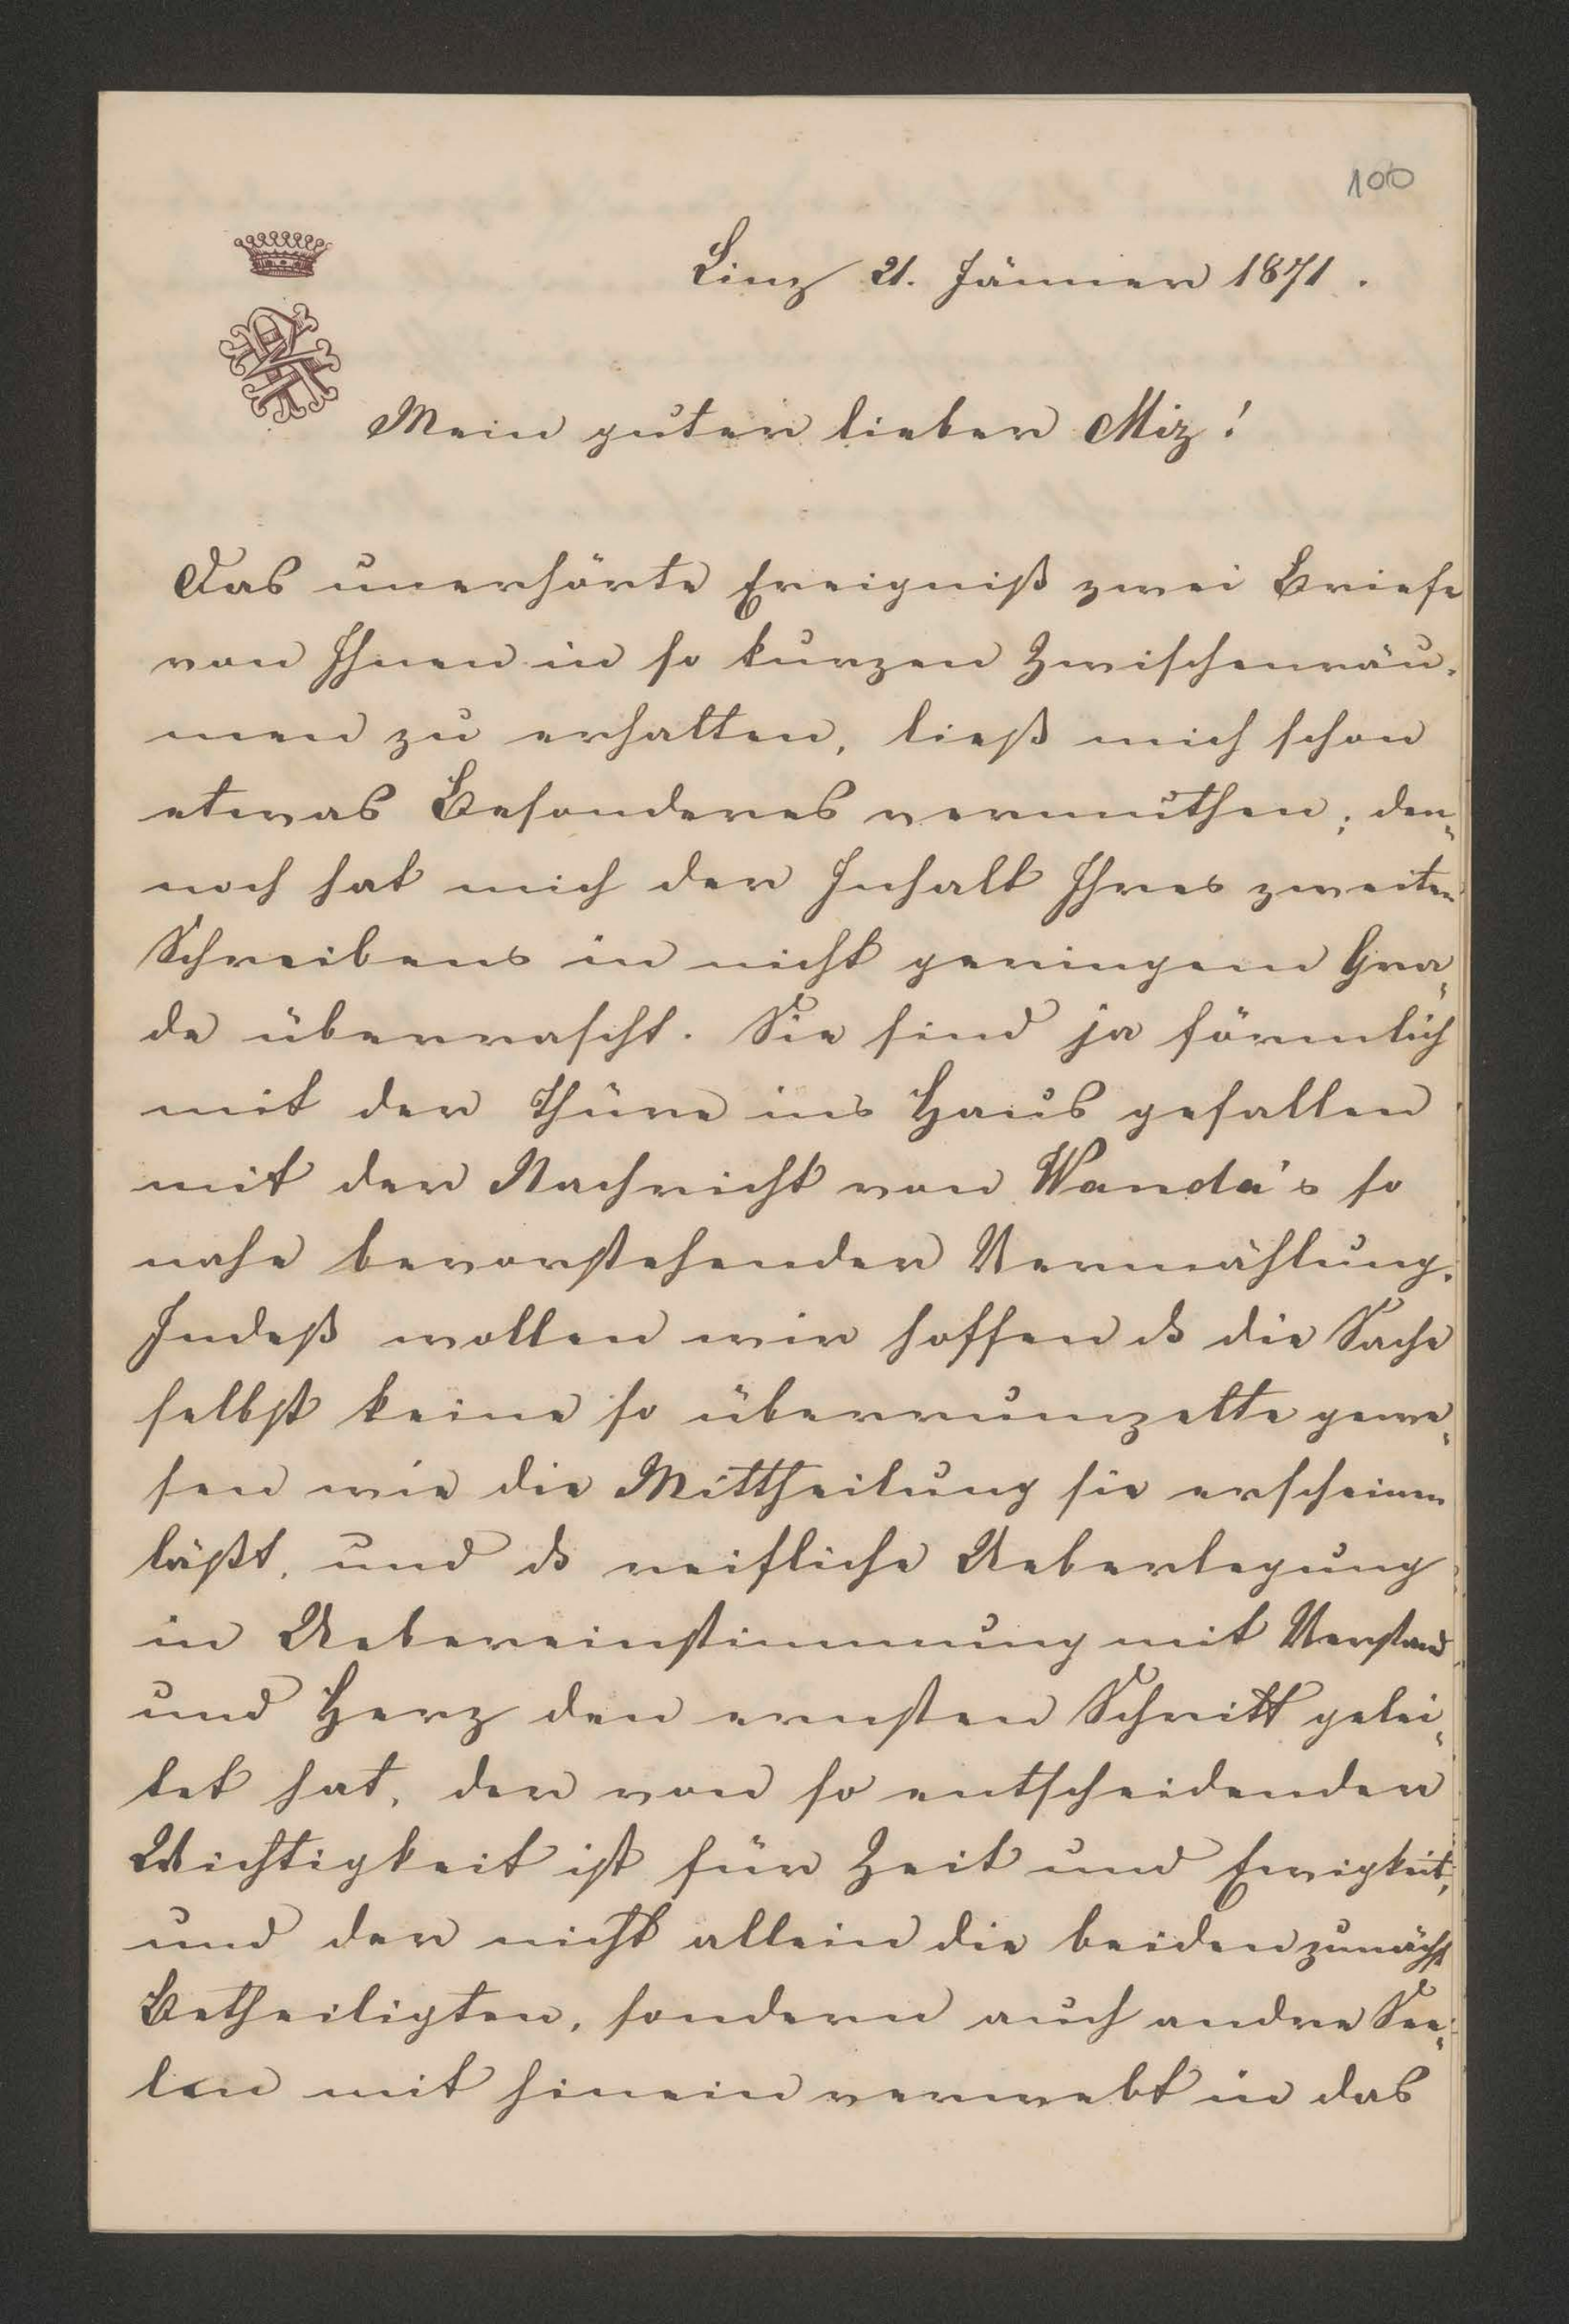 100
Linz 21. Jänner 1871.
Mein guter lieber Miz!
Das unerhörte Ereigniß zwei Briefe
von Ihnen in so kurzen Zwischenräu-
men zu erhalten, ließ mich schon
etwas Besonderes vermuthen; den-
noch hat mich der Inhalt Ihres zweiten
Schreibens in nicht geringem Gra-
de überrascht. Sie sind ja förmlich
mit der Thüre ins Haus gefallen
mit der Nachricht von Wanda's so
nahe bevorstehender Vermählung.
Indeß wollen wir hoffen ds die Sache
selbst keine so überrumzelte gewe-
sen wie die Mittheilung sie erscheinen
läßt, und ds reifliche Ueberlegung
in Uebereinstimmung mit Verstand
und Herz den ernsten Schritt gelei-
tet hat, der von so entscheidender
Wichtigkeit ist für Zeit und Ewigkeit,
und der nicht allein die beiden zunächst
Betheiligten, sondern auch andre See-
len mit hinein verwebt in das